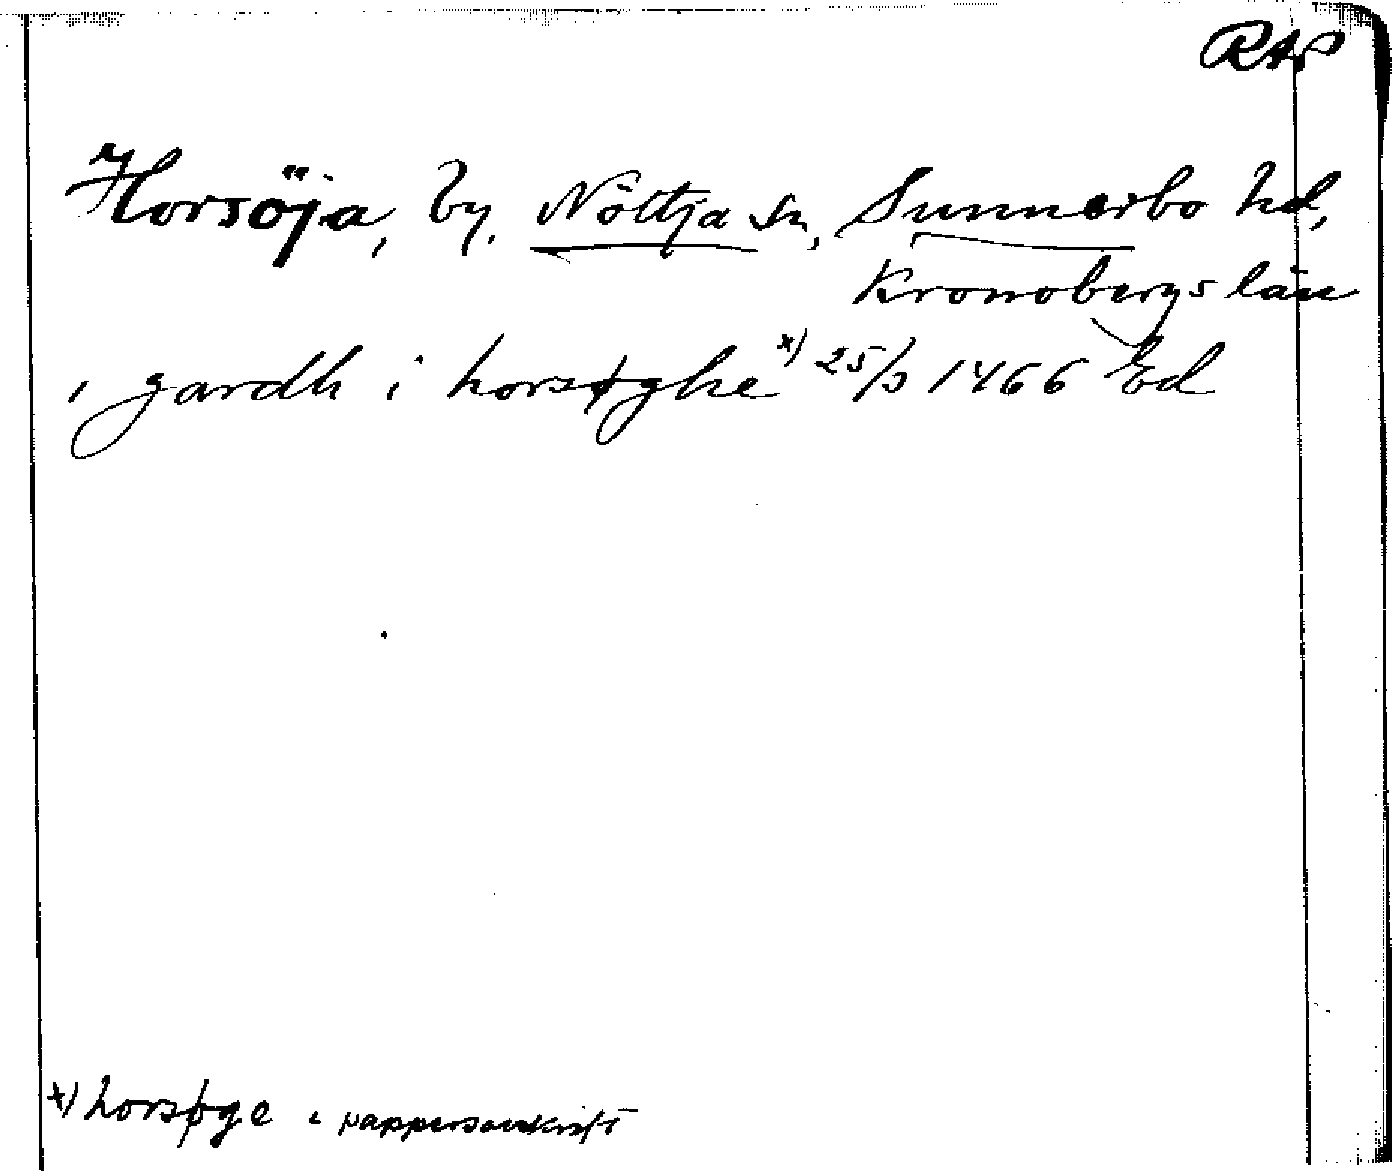 RAP
Horsöja, by, Nöttja sn, Sunnerbo hd,
Kronobergs län
1 gardh i horsøghe x) 25/3 1466 Ed
x) horsøge i pappersavskrift